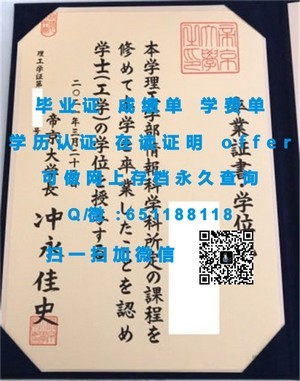 卒業証書・学位
本学理工学部情報科学所の課程を
修めて本学を卒業したことを認め
学士(工学)の学位を授与する
二〇一年三月二十日
帝京大学長 冲永佳史
理工学証第 号
毕业证 成绩单 学费单
学历认证 在读证明 offer
可做网上存档永久查询
Q/微:651188118
扫一扫加微信